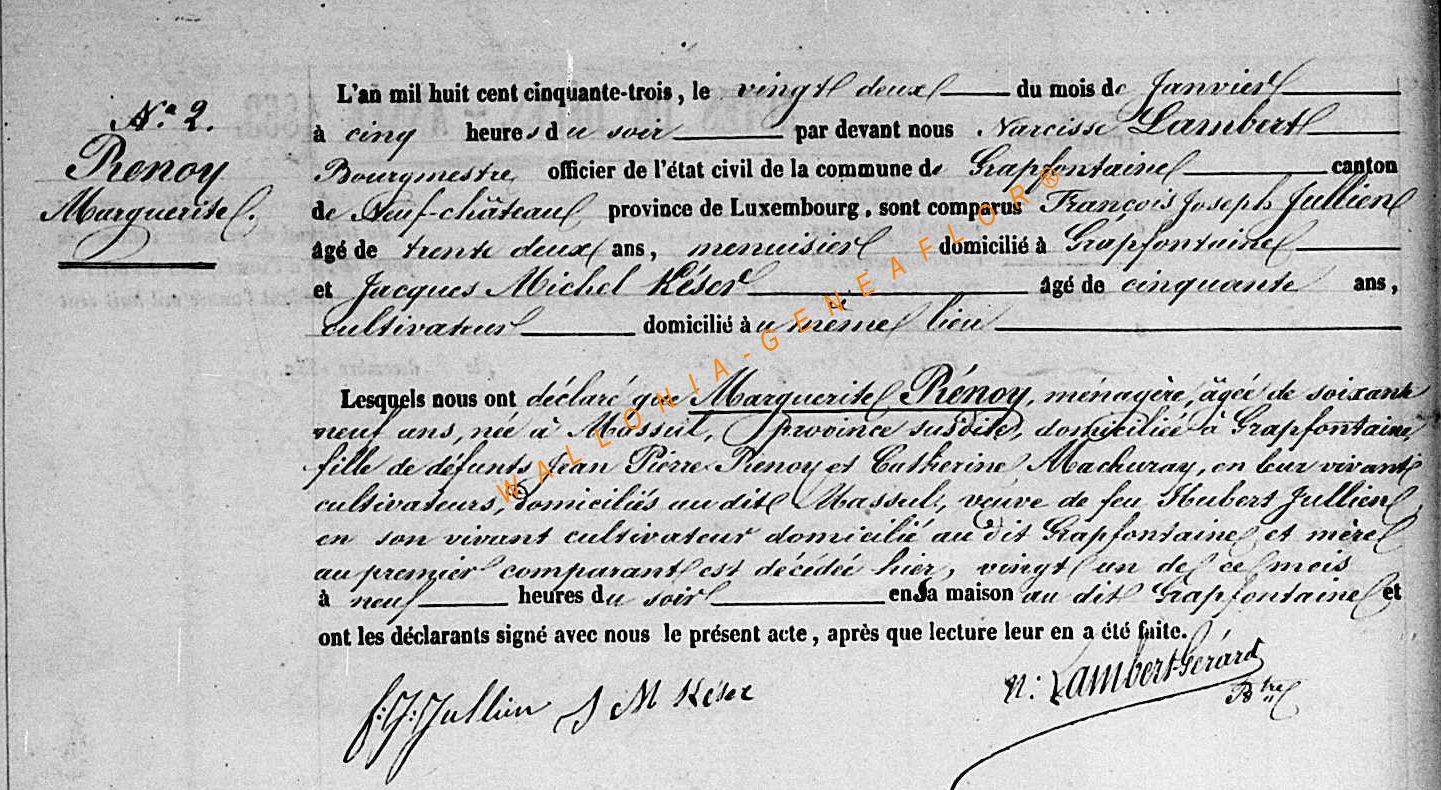 N° 2.
Renoy
Marguerite.
L'an mil huit cent cinquante-trois, le vingt deux du mois de Janvier
à cinq heures du soir par devant nous Narcisse Lambert
Bourgmestre officier de l'état civil de la commune de Grapfontaine canton
de Neuf-château province de Luxembourg, sont comparus François Joseph Jullien
âgé de trente deux ans, menuisier domicilié à Grapfontaine
et Jacques Michel Késer âgé de cinquante ans,
cultivateur domicilié au même lieu
Lesquels nous ont déclaré que Marguerite Rénoy, ménagère, âgée de soixante
neuf ans, née à Massul, province susdite, domiciliée à Grapfontaine,
fille de défunts Jean Pierre Renoy et Catherine Machuray, en leur vivant
cultivateurs, domiciliés au dit Massul, veuve de feu Hubert Jullien
en son vivant cultivateur domicilié au dit Grapfontaine et mère
au premier comparant est décédée hier, vingt un de ce mois
à neuf heures du soir en sa maison au dit Grapfontaine et
ont les déclarants signé avec nous le présent acte, après que lecture leur en a été faite.
f: J: Jullien J M Késer n: Lambert-Gérard
Btre
WALLONIA-GENEAFLOR®